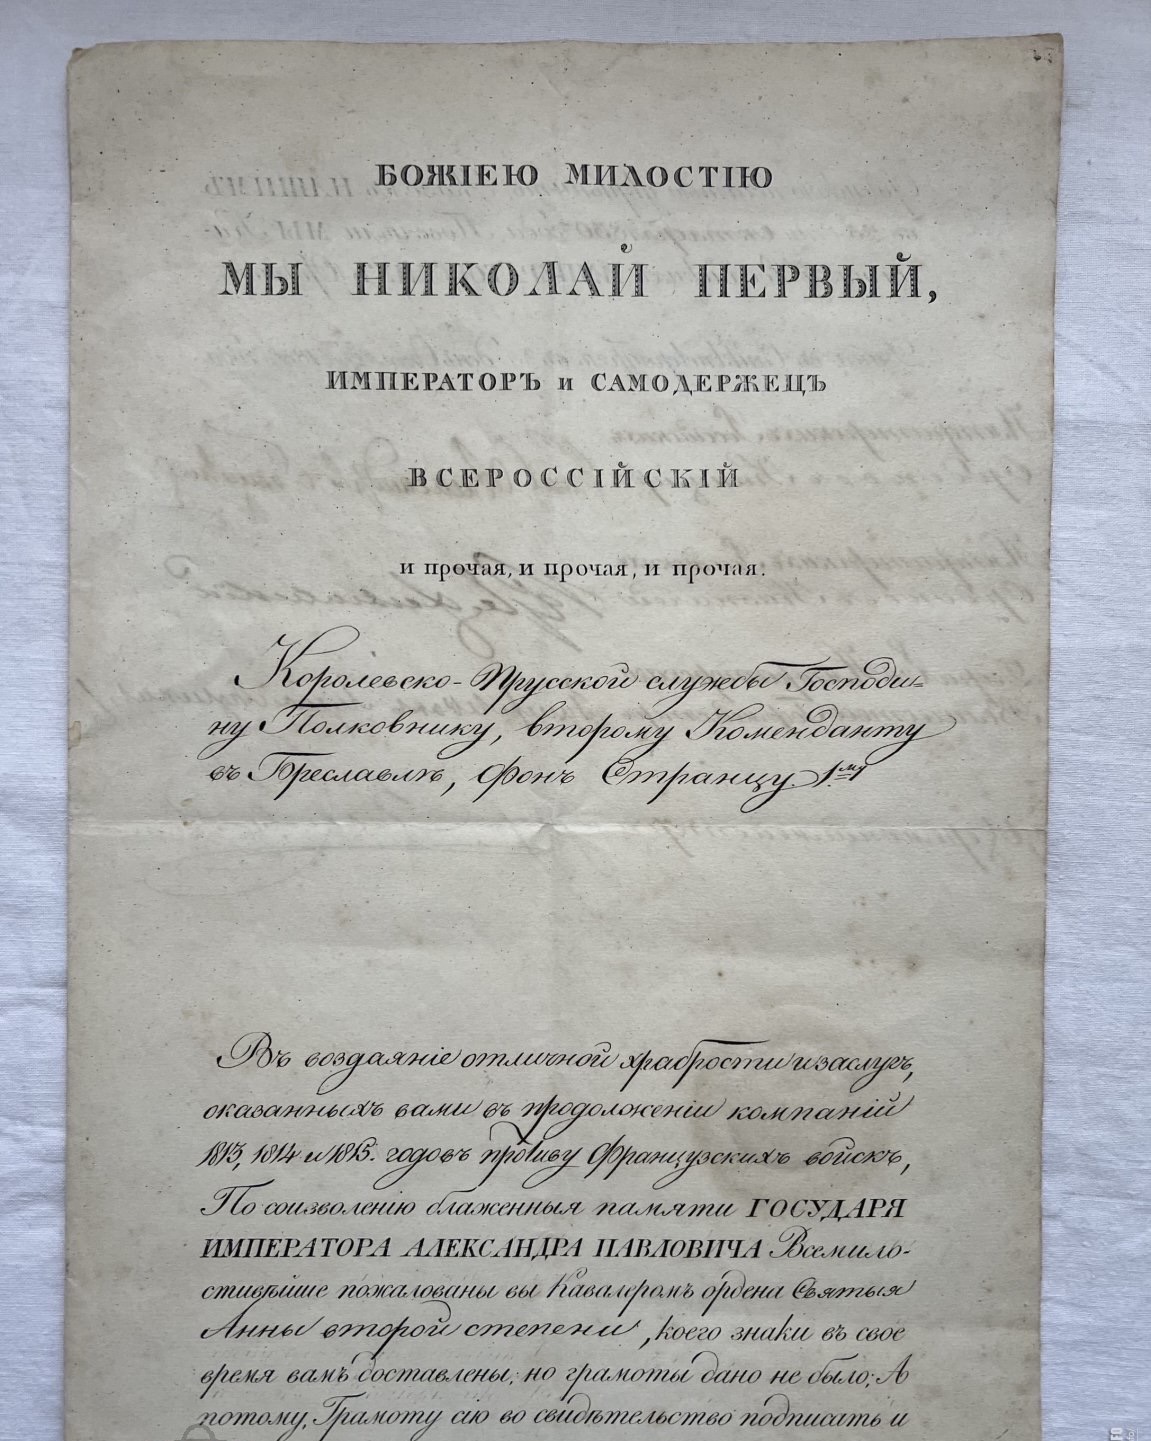 БОЖІЕЮ МИЛОСТІЮ
МЫ НИКОЛАЙ ПЕРВЫЙ,
ИМПЕРАТОРЪ и САМОДЕРЖЕЦЪ
ВСЕРОССІЙСКІЙ
и прочая, и прочая, и прочая.
Королевско-Прусской службы Господи=
ну Полковнику, второму Коменданту
въ Бреславлѣ, фонъ Странцу 1му
Въ воздаяніе отличной храбрости и заслугъ,
оказанныхъ вами въ продолженіи компаній
1813, 1814 и 1815. годовъ противу Французскихъ войскъ,
По соизволенію блаженныя памяти ГОСУДАРЯ
ИМПЕРАТОРА АЛЕКСАНДРА ПАВЛОВИЧА Всемило-
стивѣйше пожалованы вы Кавалеромъ ордена Святыя
Анны второй степени, коего знаки въ свое
время вамъ доставлены, но грамоты дано не было; А
потому, Грамоту сію во свидѣтельство подписать и